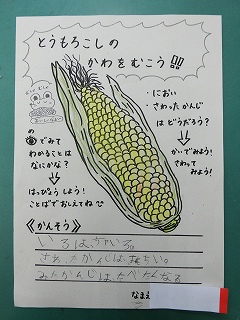 とうもろこしの
かわをむこう!!
・におい
・さわったかんじ
は どうだろう?
かいでみよう!
さわって
みよう!
の
でみて
わかることは
なにかな?
はっぴょうしよう!
ことばでおしえてね
《かんそう》
いろは、きいろ。
さわったかんじは、かたい。
みたかんじは、たべたくなる
なまえ